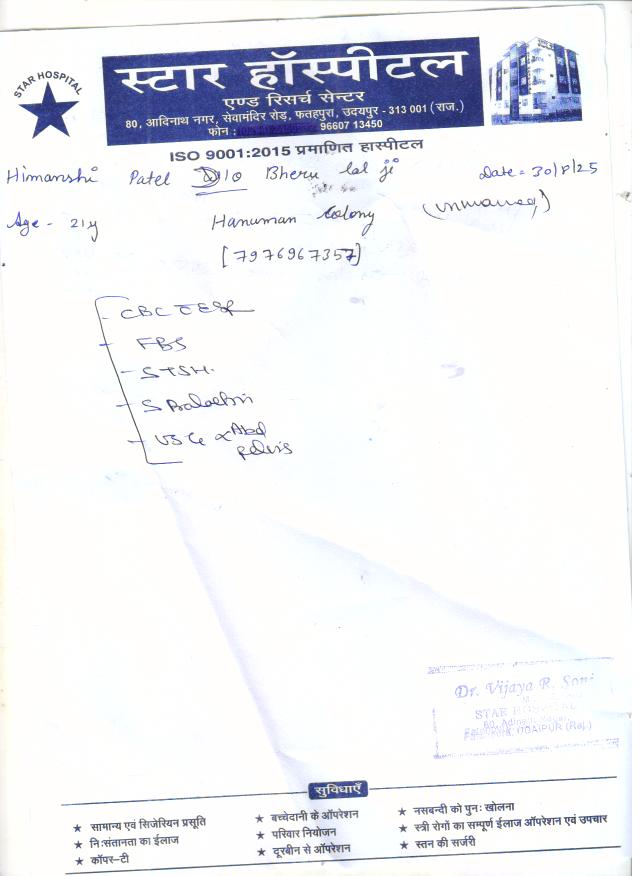 STAR HOSPITAL
स्टार हॉस्पीटल
एण्ड रिसर्च सेन्टर
80, आदिनाथ नगर, सेवामंदिर रोड़, फतहपुरा, उदयपुर - 313 001 (राज.)
फोन : 96607 13450
ISO 9001:2015 प्रमाणित हास्पीटल
Himanshi Patel D/o Bheru lal ji Date = 30/8/25
Age - 21y Hanuman Colony
[7976967357]
CBC ESR
FBS
STSH.
S Prolactin
USG Abd
pelvis
Dr. Vijaya R. Soni
STAR HOSPITAL
UDAIPUR (Raj.)
सुविधाएँ
★ सामान्य एवं सिजेरियन प्रसूति ★ बच्चेदानी के ऑपरेशन ★ नसबन्दी को पुनः खोलना
★ निःसंतानता का ईलाज ★ परिवार नियोजन ★ स्त्री रोगों का सम्पूर्ण ईलाज ऑपरेशन एवं उपचार
★ कॉपर-टी ★ दूरबीन से ऑपरेशन ★ स्तन की सर्जरी